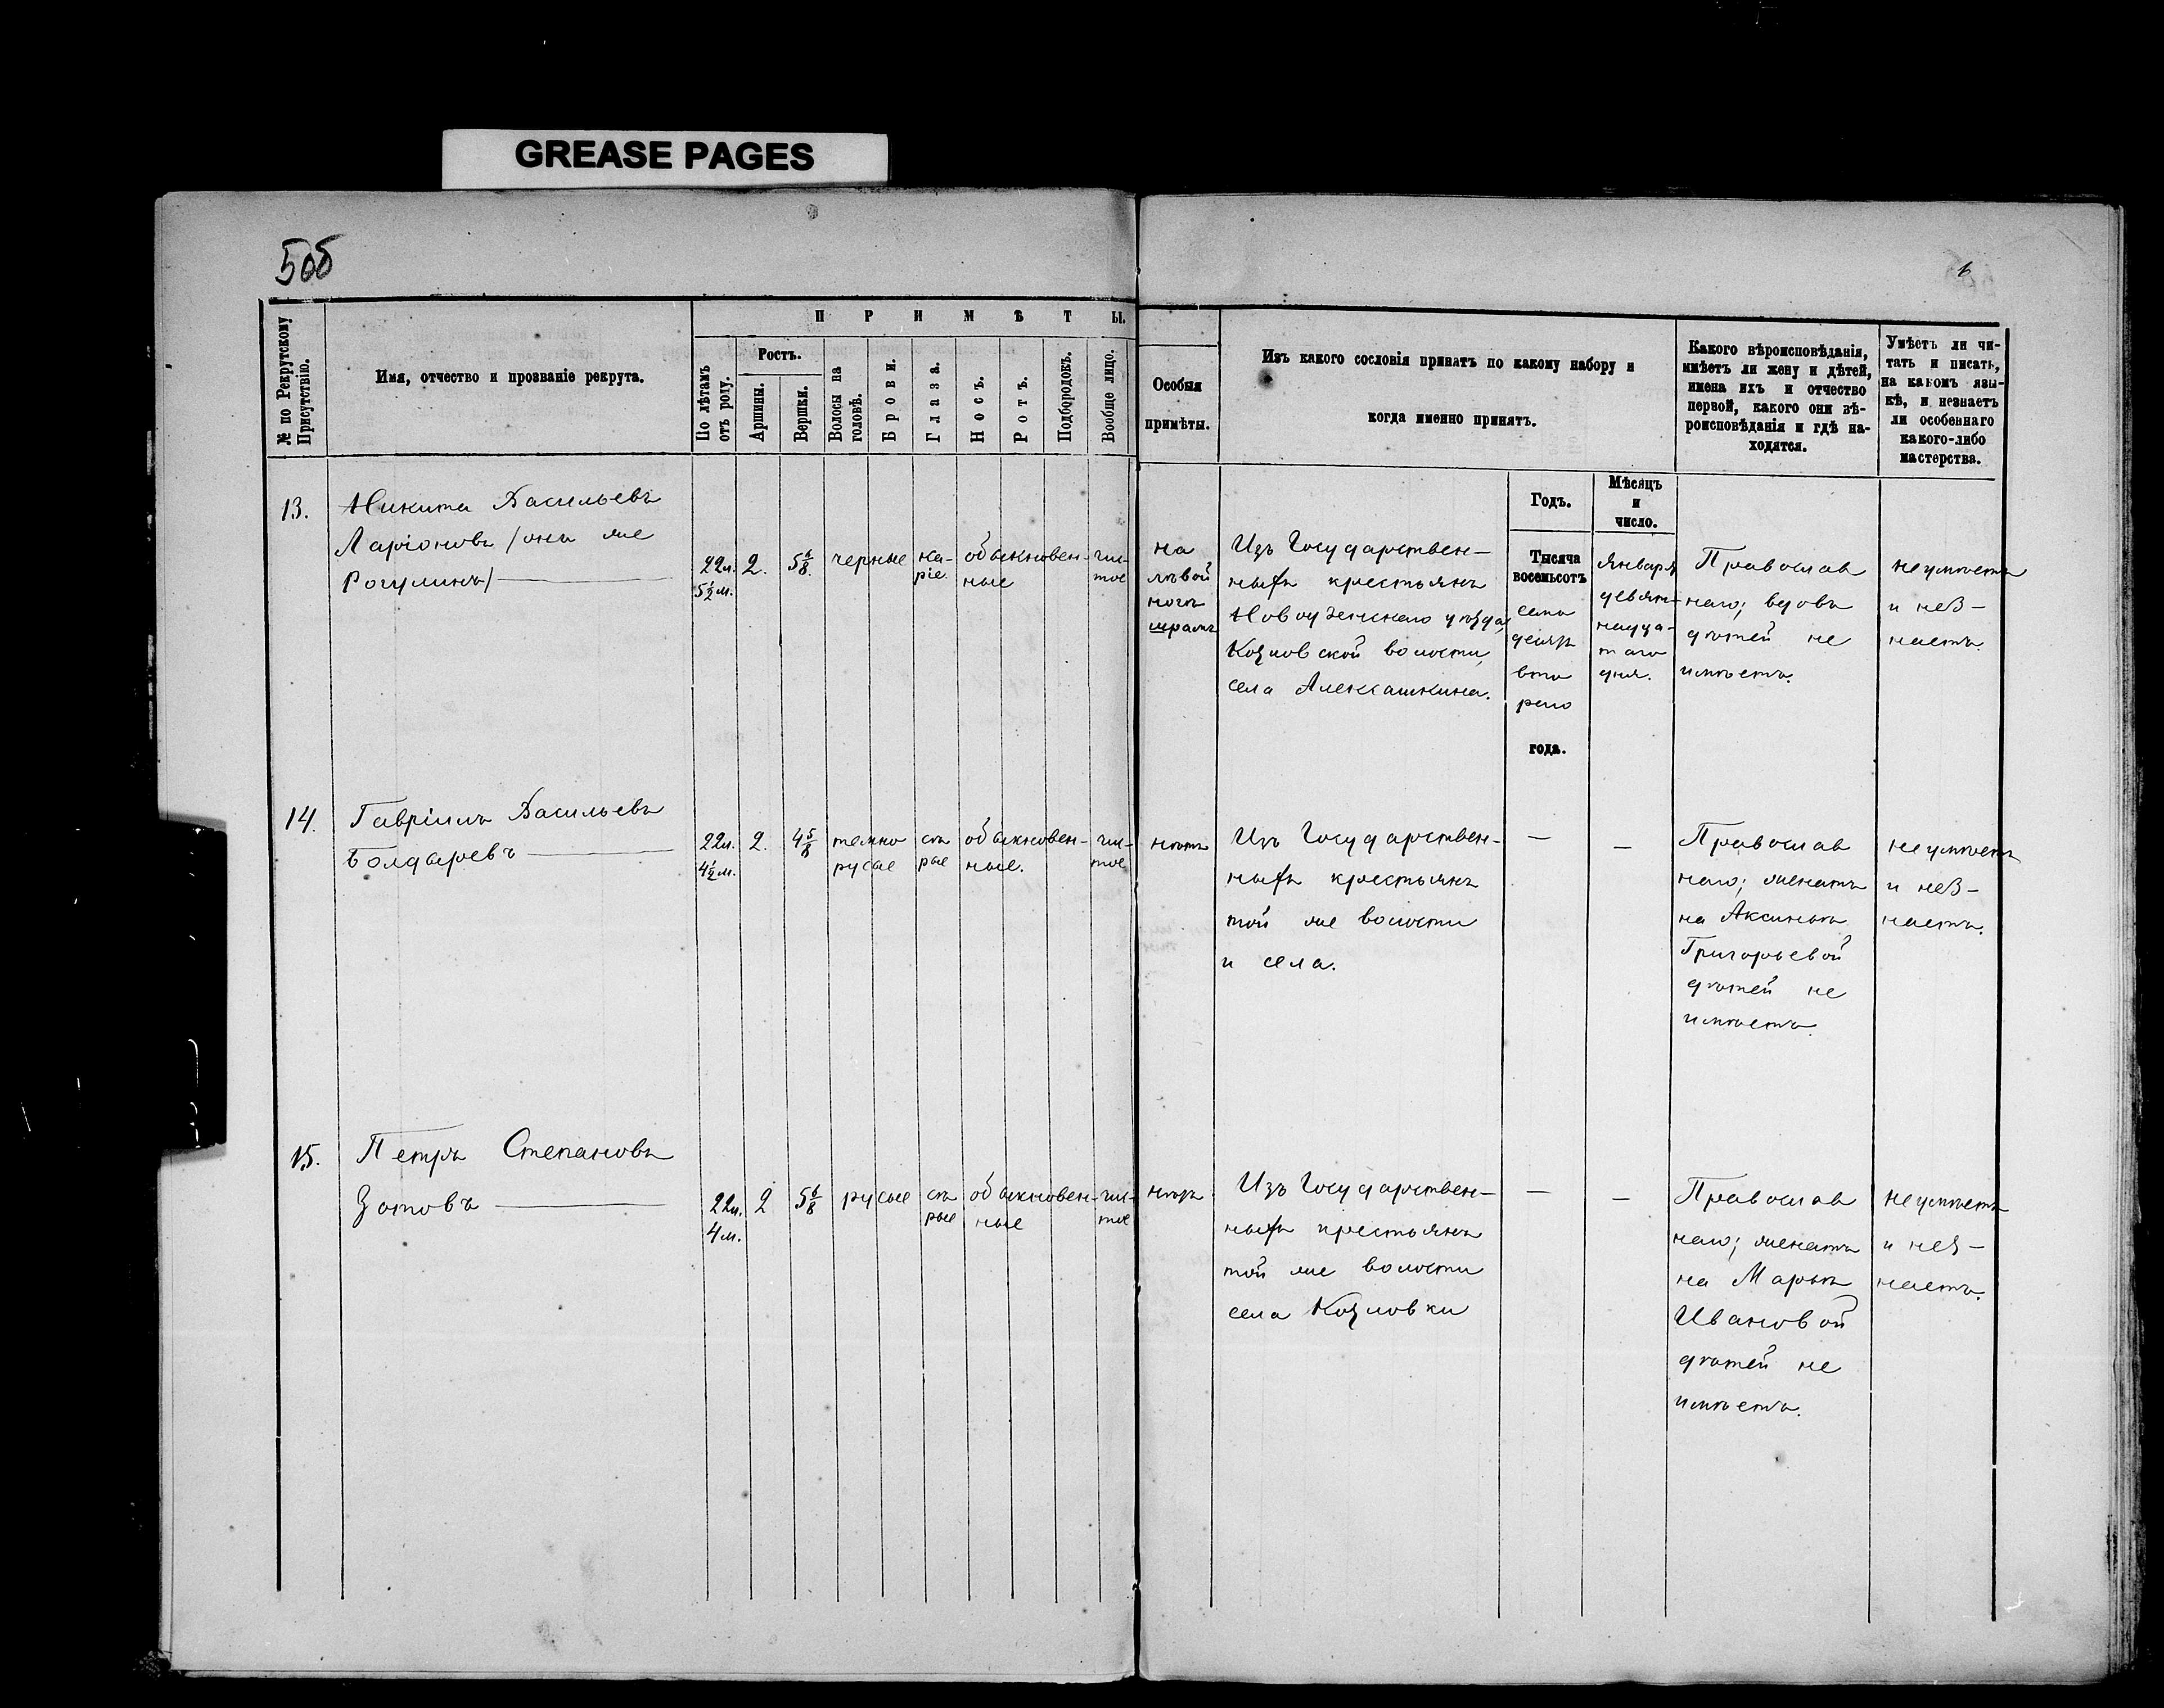 GREASE PAGES
5об
6
№ по Рекрутскому Присутствію.
Имя, отчество и прозваніе рекрута.
ПРИМѢТЫ.
По лѣтамъ отъ роду.
Ростъ.
Аршины.
Вершки.
Волосы на головѣ.
Брови.
Глаза.
Носъ.
Ротъ.
Подбородокъ.
Вообще лицо.
Особыя
примѣты.
Изъ какого сословія принятъ по какому набору и
когда именно принятъ.
Какого вѣроисповѣданія,
имѣетъ ли жену и дѣтей,
имена ихъ и отчество
первой, какого они вѣ-
роисповѣданія и гдѣ на-
ходятся.
Умѣетъ ли чи-
тать и писать,
на какомъ язы-
кѣ, и незнаетъ
ли особеннаго
какого-либо
мастерства.
Годъ.
Мѣсяцъ
и
число.
13.
Никита Васильевъ
Ларіоновъ /онъ же
Рогулинъ/
22 л.
5½ м.
2.
5 6/8.
черные
ка-
ріе
обыкновен-
ные
чи-
тое
на
лѣвой
ногѣ
шрамъ
Изъ Государствен-
ныхъ крестьянъ
Новоузенскаго уѣзда,
Козловской волости,
села Алексашкина.
Тысяча
восемьсотъ
семь
десятъ
вто
раго
года.
Января
девят-
надца-
таго
дня.
Православ
наго; вдовъ
дѣтей не
имѣетъ.
неумѣетъ
и нез-
наетъ.
14.
Гавріилъ Васильевъ
Болдыревъ
22 л.
4½ м.
2.
4 5/8
темно
русые
сѣ
рые
обыкновен-
ные.
чи-
тое
нѣтъ
Изъ Государствен-
ныхъ крестьянъ
той же волости
и села.
—
—
Православ
наго; женатъ
на Аксиньѣ
Григорьевой
дѣтей не
имѣетъ.
неумѣетъ
и нез-
наетъ.
15.
Петръ Степановъ
Зотовъ
22 л.
4 м.
2
5 6/8
русые
сѣ
рые
обыкновен-
ные
чи-
тое
нѣтъ
Изъ Государствен-
ныхъ крестьянъ
той же волости
села Козловки
—
—
Православ
наго; женатъ
на Марьѣ
Ивановой
дѣтей не
имѣетъ.
неумѣетъ
и нез-
наетъ.